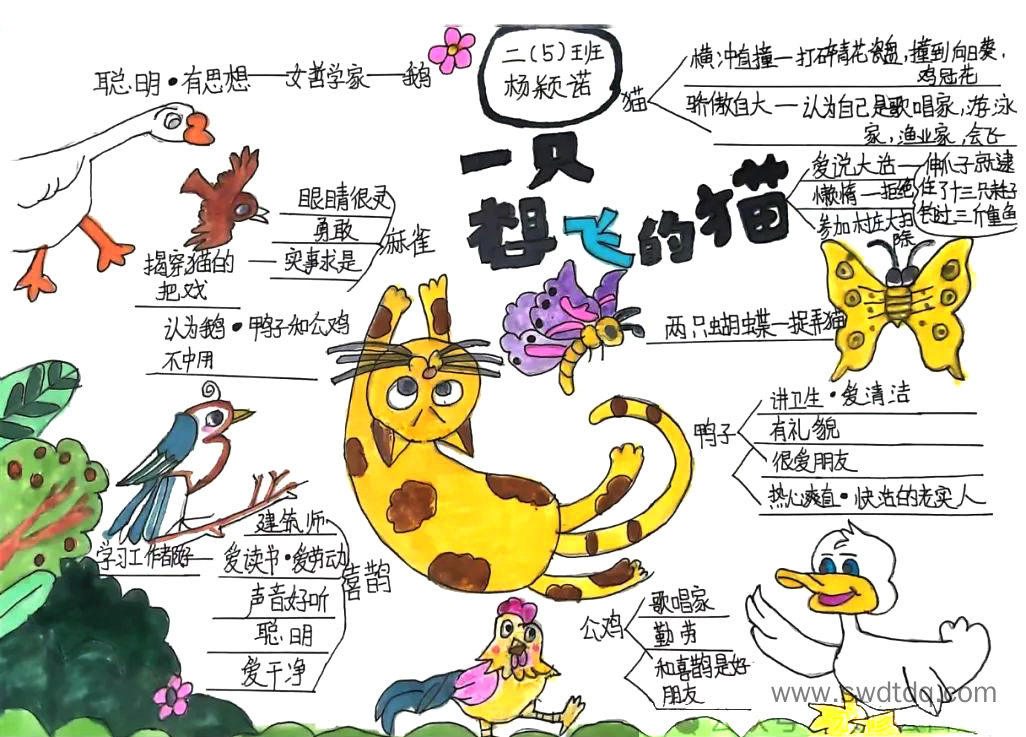 二(5)班
杨颖诺
一只
想飞的猫
聪明·有思想—文哲学家—鹅
猫
横冲直撞—打碎青花瓷盘,撞到向日葵,
鸡冠花
骄傲自大—认为自己是歌唱家,游泳
家,渔业家,会飞
爱说大话—伸爪子就逮
住了十三只耗子
懒惰—拒绝
参加村庄大扫
除
两只蝴蝶—捉弄猫
麻雀
眼睛很灵
勇敢
揭穿猫的
把戏
—实事求是
认为鹅·鸭子和公鸡
不中用
鸭子
讲卫生·爱清洁
有礼貌
很爱朋友
热心爽直·快活的老实人
喜鹊
建筑师
学习工作都好—爱读书·爱劳动
声音好听
聪明
爱干净
公鸡
歌唱家
勤劳
和喜鹊是好
朋友
www.swdtdq.com